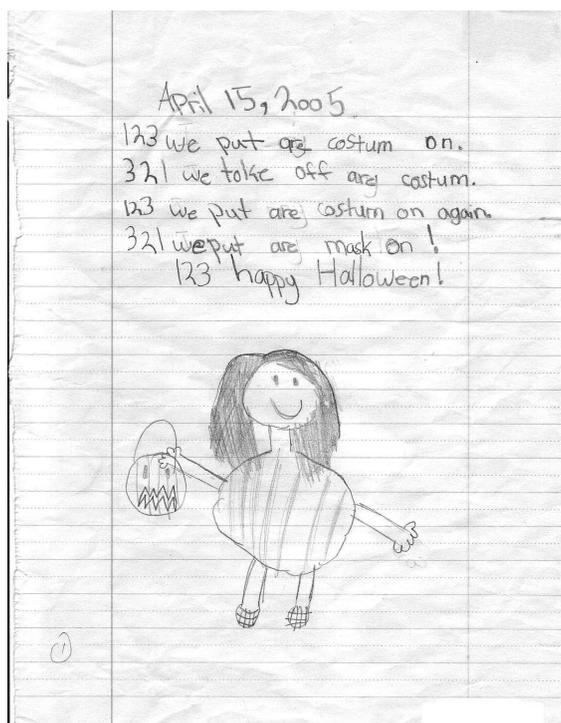 April 15, 2005
123 we put are costum on.
321 we take off are costum.
123 we put are costum on again.
321 we put are mask on!
123 happy Halloween!
1